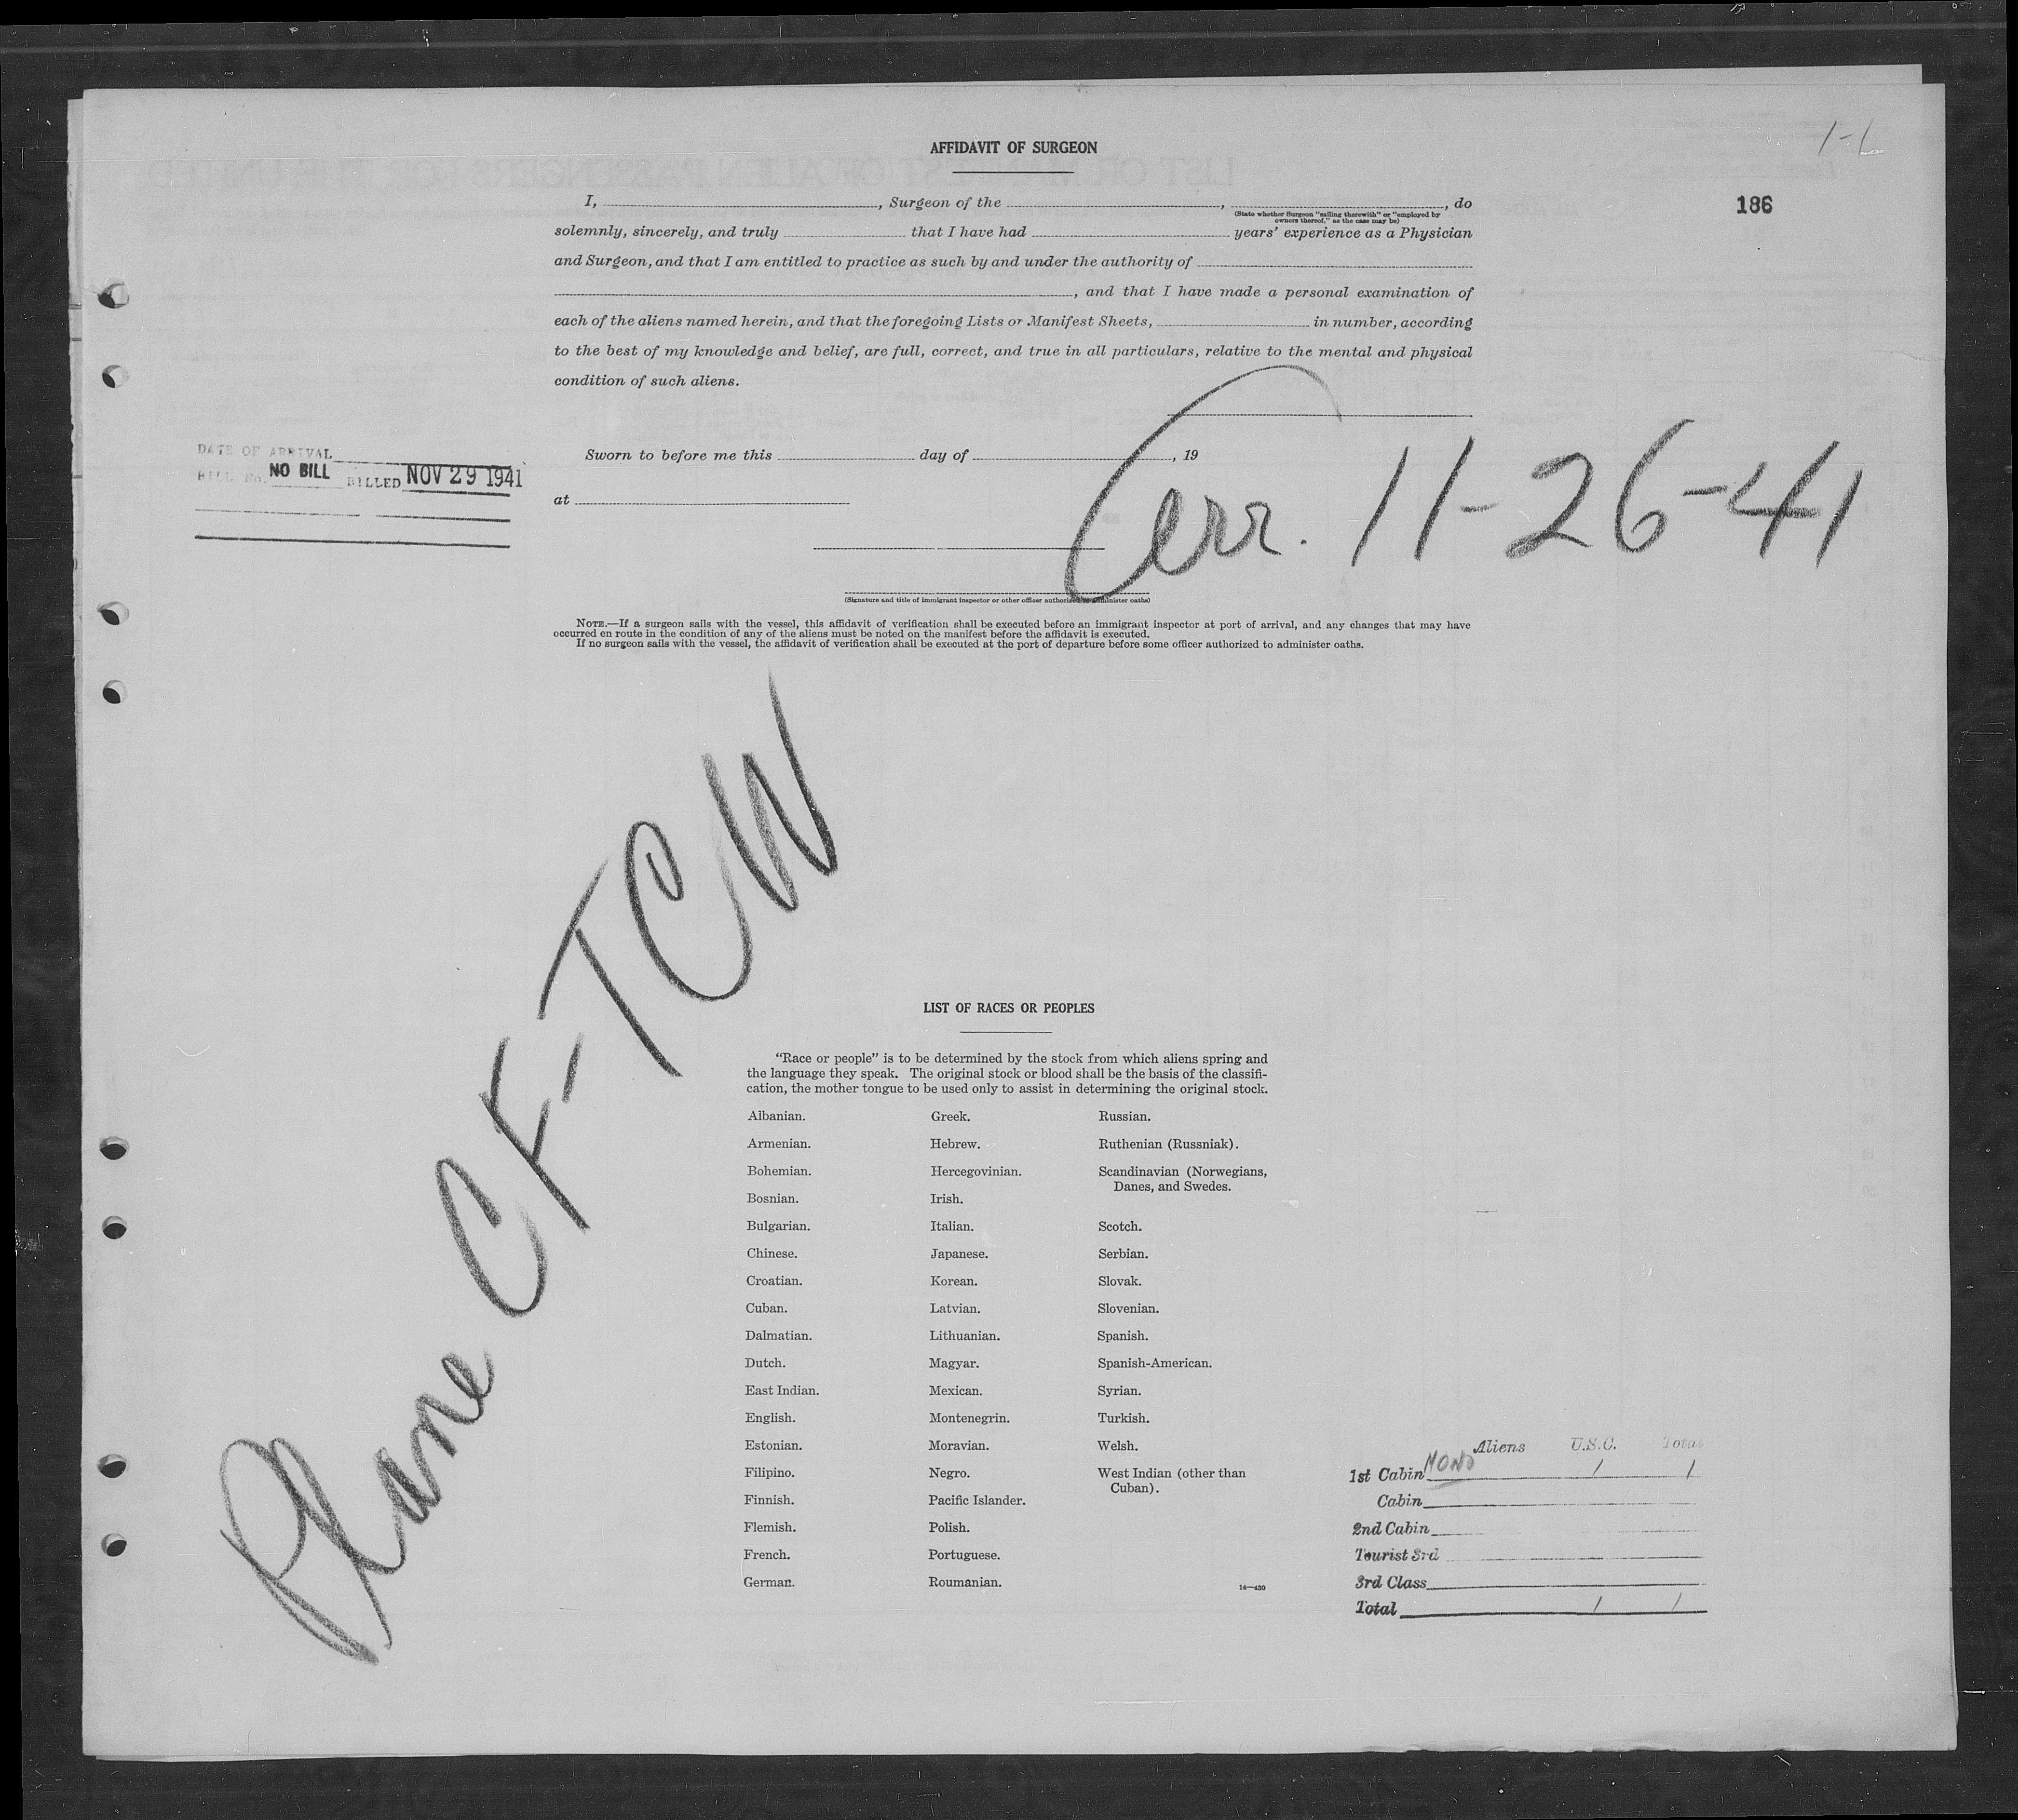 1-6
AFFIDAVIT OF SURGEON
186
I, , Surgeon of the , , do
(State whether Surgeon "sailing therewith" or "employed by
owners thereof," as the case may be)
solemnly, sincerely, and truly that I have had years' experience as a Physician
and Surgeon, and that I am entitled to practice as such by and under the authority of
, and that I have made a personal examination of
each of the aliens named herein, and that the foregoing Lists or Manifest Sheets, in number, according
to the best of my knowledge and belief, are full, correct, and true in all particulars, relative to the mental and physical
condition of such aliens.
DATE OF ARRIVAL
BILL No. NO BILL BILLED NOV 29 1941
Sworn to before me this day of , 19
at
arr. 11-26-41
(Signature and title of immigrant inspector or other officer authorized to administer oaths)
NOTE.—If a surgeon sails with the vessel, this affidavit of verification shall be executed before an immigrant inspector at port of arrival, and any changes that may have
occurred en route in the condition of any of the aliens must be noted on the manifest before the affidavit is executed.
If no surgeon sails with the vessel, the affidavit of verification shall be executed at the port of departure before some officer authorized to administer oaths.
Plane CF-TCW
LIST OF RACES OR PEOPLES
"Race or people" is to be determined by the stock from which aliens spring and
the language they speak. The original stock or blood shall be the basis of the classifi-
cation, the mother tongue to be used only to assist in determining the original stock.
Albanian. Greek. Russian.
Armenian. Hebrew. Ruthenian (Russniak).
Bohemian. Hercegovinian. Scandinavian (Norwegians,
Danes, and Swedes.
Bosnian. Irish.
Bulgarian. Italian. Scotch.
Chinese. Japanese. Serbian.
Croatian. Korean. Slovak.
Cuban. Latvian. Slovenian.
Dalmatian. Lithuanian. Spanish.
Dutch. Magyar. Spanish-American.
East Indian. Mexican. Syrian.
English. Montenegrin. Turkish.
Estonian. Moravian. Welsh.
Filipino. Negro. West Indian (other than
Cuban).
Finnish. Pacific Islander.
Flemish. Polish.
French. Portuguese.
German. Roumanian.
14—430
Aliens U.S.C. Total
1st Cabin 1 1
Cabin
2nd Cabin
Tourist 3rd
3rd Class
Total 1 1